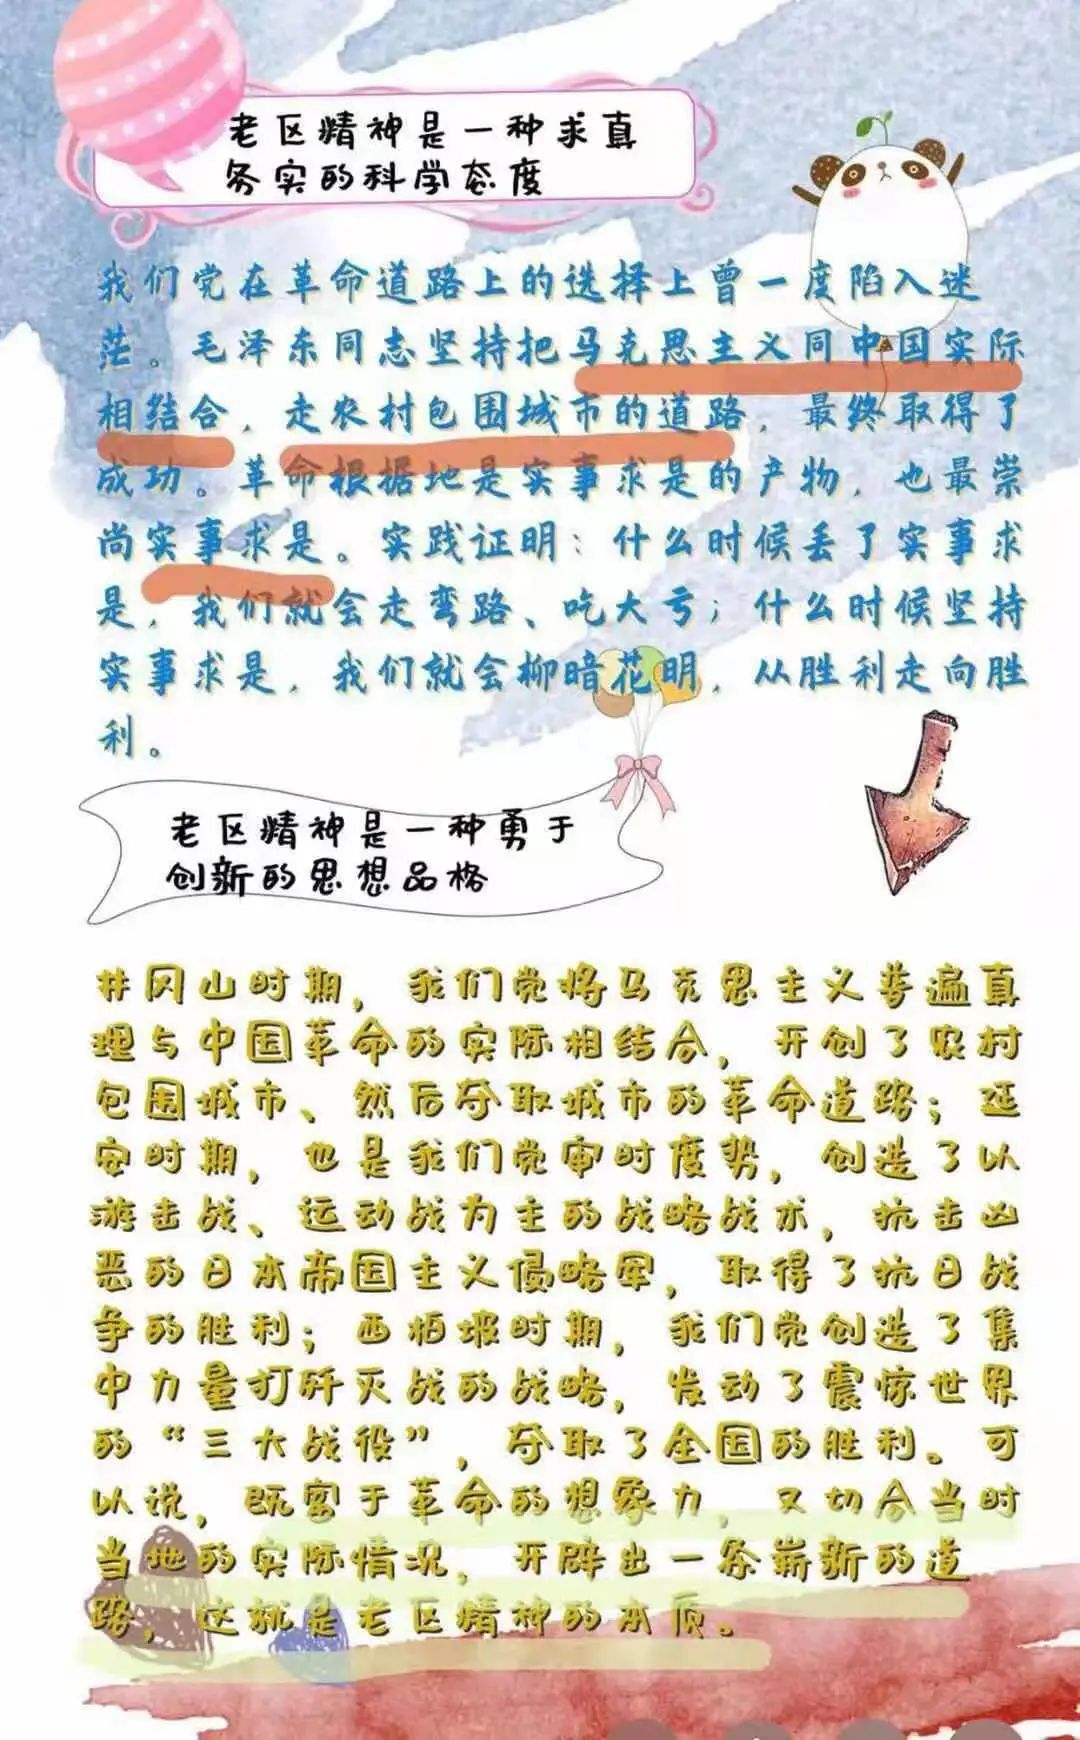 老区精神是一种求真
务实的科学态度
我们党在革命道路上的选择上曾一度陷入迷
茫。毛泽东同志坚持把马克思主义同中国实际
相结合，走农村包围城市的道路，最终取得了
成功。革命根据地是实事求是的产物，也最崇
尚实事求是。实践证明：什么时候丢了实事求
是，我们就会走弯路、吃大亏；什么时候坚持
实事求是，我们就会柳暗花明，从胜利走向胜
利。
老区精神是一种勇于
创新的思想品格
井冈山时期，我们党将马克思主义普遍真
理与中国革命的实际相结合，开创了农村
包围城市、然后夺取城市的革命道路；延
安时期，也是我们党审时度势，创造了以
游击战、运动战为主的战略战术，抗击凶
恶的日本帝国主义侵略军，取得了抗日战
争的胜利；西柏坡时期，我们党创造了集
中力量打歼灭战的战略，发动了震惊世界
的“三大战役”，夺取了全国的胜利。可
以说，既富于革命的想象力，又切合当时
当地的实际情况，开辟出一条崭新的道
路，这就是老区精神的本质。